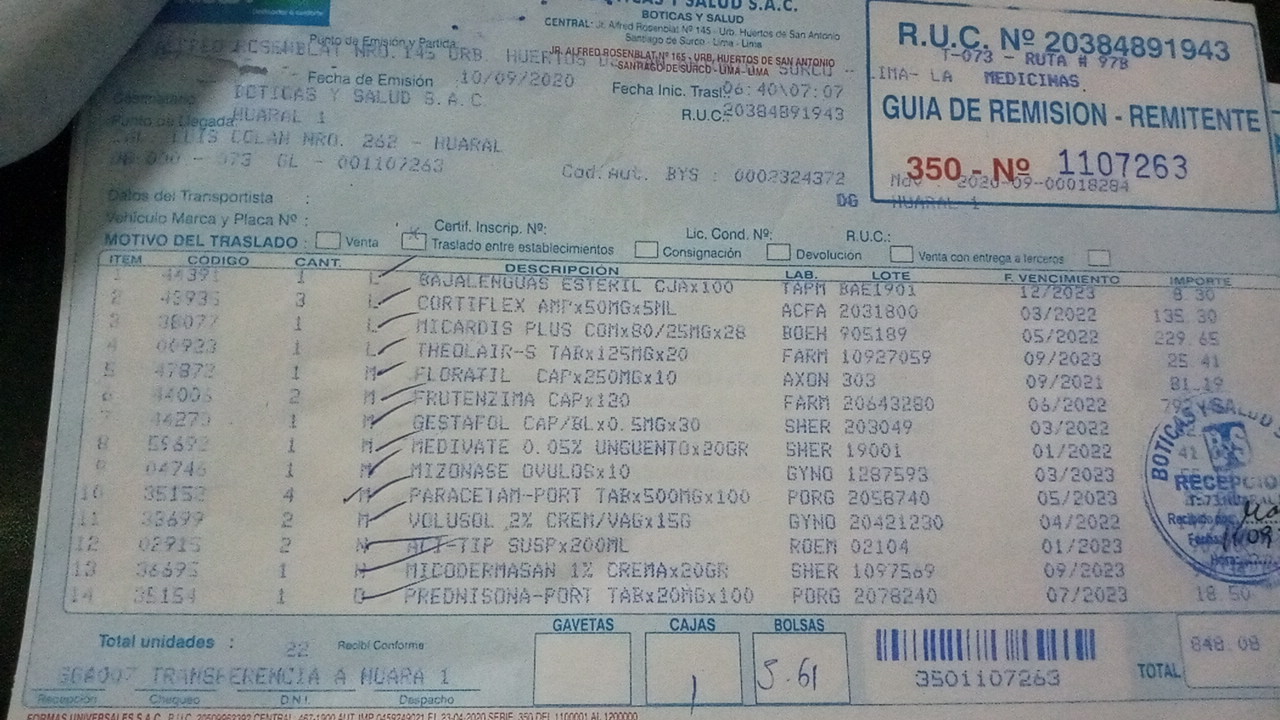 BOTICAS Y SALUD S.A.C.
BOTICAS Y SALUD
CENTRAL: Jr. Alfred Rosenblat Nº 145 - Urb. Huertos de San Antonio
Santiago de Surco - Lima - Lima
JR. ALFRED ROSENBLAT Nº 165 - URB. HUERTOS DE SAN ANTONIO
SANTIAGO DE SURCO - LIMA - LIMA
R.U.C. Nº 20384891943
T-073 - RUTA # 97B
LIMA- LA MEDICINAS
GUIA DE REMISION - REMITENTE
350 - Nº 1107263
Nov : 2020-09-00018284
HUARAL 1
Punto de Emisión y Partida
ALFRED ROSENBLAT NRO.145 URB. HUERTOS SURCO --
Fecha de Emisión 10/09/2020 Fecha Inic. Trasl. 06:40\07:07
Destinatario BOTICAS Y SALUD S.A.C. R.U.C. 20384891943
HUARAL 1
Punto de Llegada
LUIS COLAN NRO. 262 - HUARAL
073 GL - 001107263
Cod.Aut. BYS : 0002324372
DG
Datos del Transportista :
Vehículo Marca y Placa Nº : Certif. Inscrip. Nº: Lic. Cond. Nº: R.U.C.:
MOTIVO DEL TRASLADO : Venta Traslado entre establecimientos Consignación Devolución Venta con entrega a terceros
ITEM CÓDIGO CANT. DESCRIPCIÓN LAB. LOTE F. VENCIMIENTO IMPORTE
1 44391 1 L BAJALENGUAS ESTERIL CJAx100 TAPM BAE1901 12/2023 8.30
2 43935 3 L CORTIFLEX AMPx50MGx5ML ACFA 2031800 03/2022 135.30
3 38077 1 L MICARDIS PLUS COMx80/25MGx28 BOEH 905189 05/2022 229.65
4 06923 1 L THEOLAIR-S TABx125MGx20 FARM 10927059 09/2023 25.41
5 47873 1 M FLORATIL CAPx250MGx10 AXON 303 09/2021 81.19
6 44006 2 M FRUTENZIMA CAPx120 FARM 20643280 06/2022
7 44270 1 M GESTAFOL CAP/BLx0.5MGx30 SHER 203049 03/2022
8 59692 1 M MEDIVATE 0.05% UNGUENTOx20GR SHER 19001 01/2022
9 04746 1 M MIZONASE OVULOSx10 GYNO 1287593 03/2023
10 35152 4 M PARACETAM-PORT TABx500MGx100 PORG 2058740 05/2023
11 33699 2 M VOLUSOL 2% CREM/VAGx15G GYNO 20421230 04/2022
12 02915 2 N ALI-TIP SUSPx200ML ROEM 02104 01/2023
13 36695 1 M MICODERMASAN 1% CREMAx20GR SHER 1097569 09/2023
14 35154 1 O PREDNISONA-PORT TABx20MGx100 PORG 2078240 07/2023 18.50
BOTICAS Y SALUD
RECEPCIO
Total unidades : 22 Recibí Conforme
GAVETAS CAJAS BOLSAS
1 5.61
3501107263
TOTAL 848.08
TRANSFERENCIA A HUARA 1
Recepción Chequeo D.N.I. Despacho